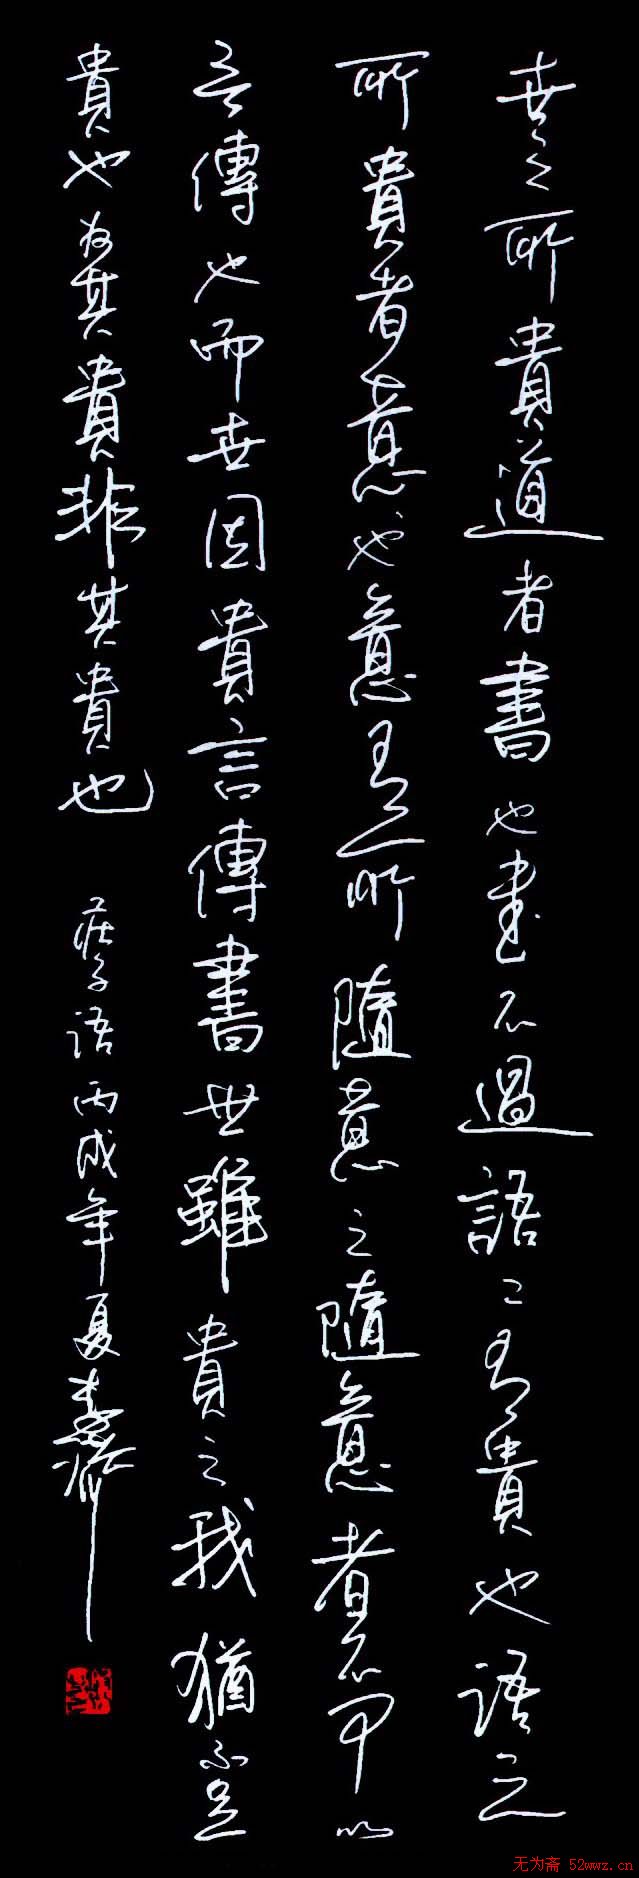 世之所貴道者書也書不過語〻有貴也語之
所貴者意也意有所隨意之隨意者不可以
言傳也而世因貴言傳書世雖貴之我猶不足
貴也為其貴非其貴也 莊子語丙戌年夏
无为斋 52wwz.cn